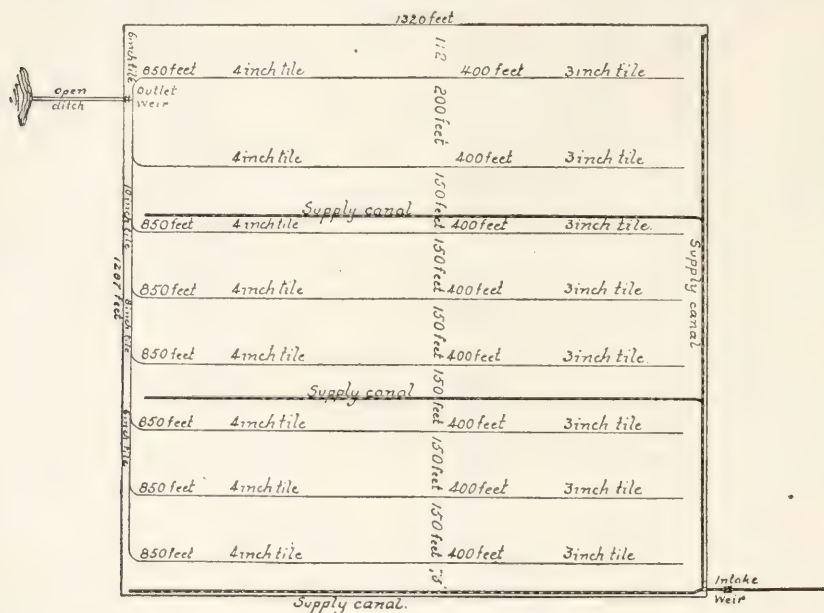 1320 feet
6 inch tile
850 feet 4 inch tile 400 feet 3 inch tile
open ditch
Outlet Weir
200 feet
4 inch tile 400 feet 3 inch tile
150 feet
Supply canal
10 inch tile
850 feet 4 inch tile 400 feet 3 inch tile.
150 feet
Supply canal
850 feet 4 inch tile 400 feet 3 inch tile
8 inch tile
150 feet
850 feet 4 inch tile 400 feet 3 inch tile.
150 feet
Supply canal
6 inch tile
850 feet 4 inch tile 400 feet 3 inch tile
150 feet
850 feet 4 inch tile 400 feet 3 inch tile
150 feet
850 feet 4 inch tile 400 feet 3 inch tile
Intake
Weir
Supply canal.